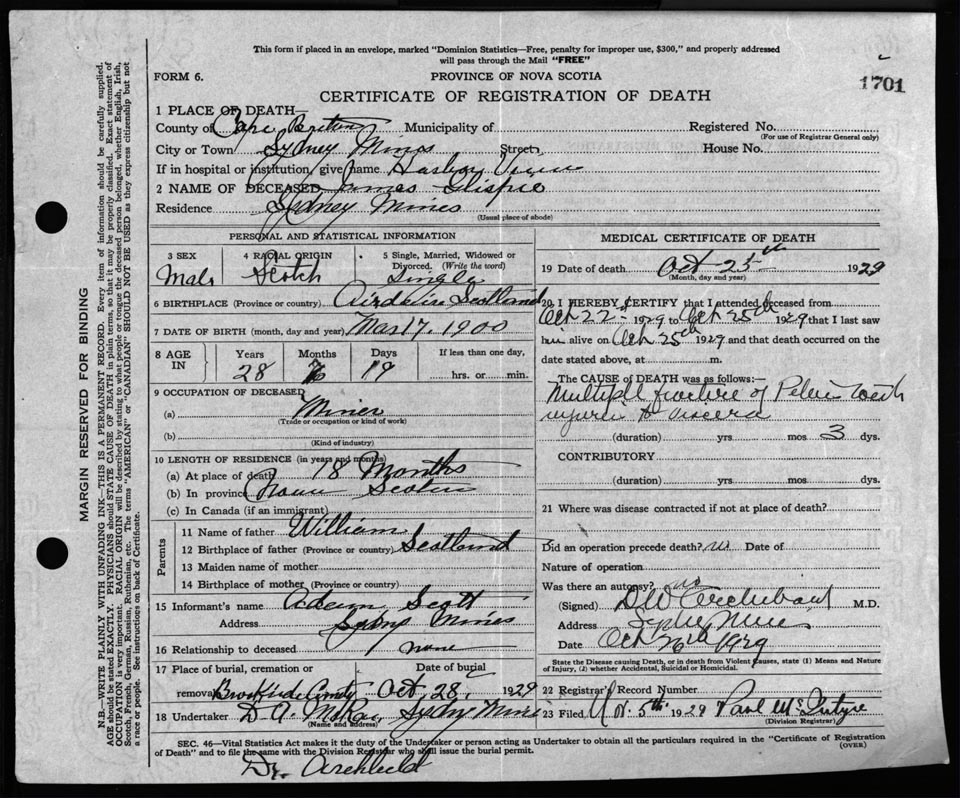 This form if placed in an envelope, marked "Dominion Statistics—Free, penalty for improper use, $300," and properly addressed
will pass through the Mail "FREE"
FORM 6.
PROVINCE OF NOVA SCOTIA
1701
CERTIFICATE OF REGISTRATION OF DEATH
1 PLACE OF DEATH—
County of Cape Breton Municipality of Registered No.
(For use of Registrar General only)
City or Town Sydney Mines Street, House No.
If in hospital or institution, give name Harbor View
2 NAME OF DECEASED James
Residence Sydney Mines
(Usual place of abode)
PERSONAL AND STATISTICAL INFORMATION
3 SEX
Male
4 RACIAL ORIGIN
Scotch
5 Single, Married, Widowed or
Divorced. (Write the word)
Single
6 BIRTHPLACE (Province or country) Scotland
7 DATE OF BIRTH (month, day and year) Mar 17, 1900
8 AGE
IN
Years Months Days If less than one day,
28 19 hrs. or min.
9 OCCUPATION OF DECEASED
(a) Miner
(Trade or occupation or kind of work)
(b)
(Kind of industry)
10 LENGTH OF RESIDENCE (in years and months)
(a) At place of death 18 Months
(b) In province Nova Scotia
(c) In Canada (if an immigrant)
Parents
11 Name of father William
12 Birthplace of father (Province or country) Scotland
13 Maiden name of mother
14 Birthplace of mother (Province or country)
15 Informant's name Adam Scott
Address Sydney Mines
16 Relationship to deceased none
17 Place of burial, cremation or Date of burial
removal Brookside Oct, 28, 1929
18 Undertaker D. A. McRae, Sydney Mines
(Name and address)
MEDICAL CERTIFICATE OF DEATH
19 Date of death Oct 25th 1929
(Month, day and year)
20 I HEREBY CERTIFY that I attended deceased from
Oct 22 1929 to Oct 25th 1929 that I last saw
him alive on Oct 25th 1929 and that death occurred on the
date stated above, at m.
The CAUSE OF DEATH was as follows:
Multiple fracture of Pelvis with
injuries to viscera
(duration) yrs mos 3 dys.
CONTRIBUTORY
(duration) yrs. mos. dys.
21 Where was disease contracted if not at place of death?
Did an operation precede death? no Date of
Nature of operation
Was there an autopsy? no
(Signed) D W Archibald M.D.
Address Sydney Mines
Date Oct 26th 1929
State the Disease causing Death, or in death from Violent Causes, state (1) Means and Nature
of Injury, (2) whether Accidental, Suicidal or Homicidal.
22 Registrar's Record Number
23 Filed Nov. 5th 1929 Paul McIntyre
(Division Registrar)
SEC. 46—Vital Statistics Act makes it the duty of the Undertaker or person acting as Undertaker to obtain all the particulars required in the "Certificate of Registration
of Death" and to file the same with the Division Registrar who shall issue the burial permit.
(OVER)
Dr. Archibald
MARGIN RESERVED FOR BINDING
N.B.—WRITE PLAINLY WITH UNFADING INK—THIS IS A PERMANENT RECORD. Every item of information should be carefully supplied.
AGE should be stated EXACTLY. PHYSICIANS should STATE CAUSE OF DEATH in plain terms, so that it may be properly classified. Exact statement of
OCCUPATION is very important. RACIAL ORIGIN will be described by stating to what people or tongue the deceased person belonged, whether English, Irish,
Scotch, French, German, Russian, Ruthenian, etc. The terms "AMERICAN" or "CANADIAN" SHOULD NOT BE USED as they express citizenship but not
a race or people. See instructions on back of Certificate.